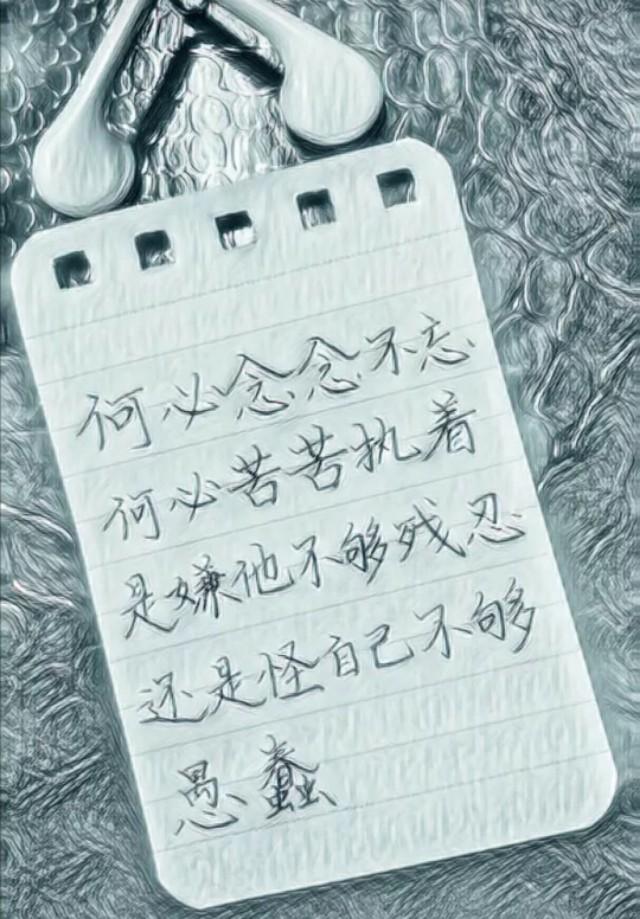 何必念念不忘
何必苦苦执着
是嫌他不够残忍
还是怪自己不够
愚蠢